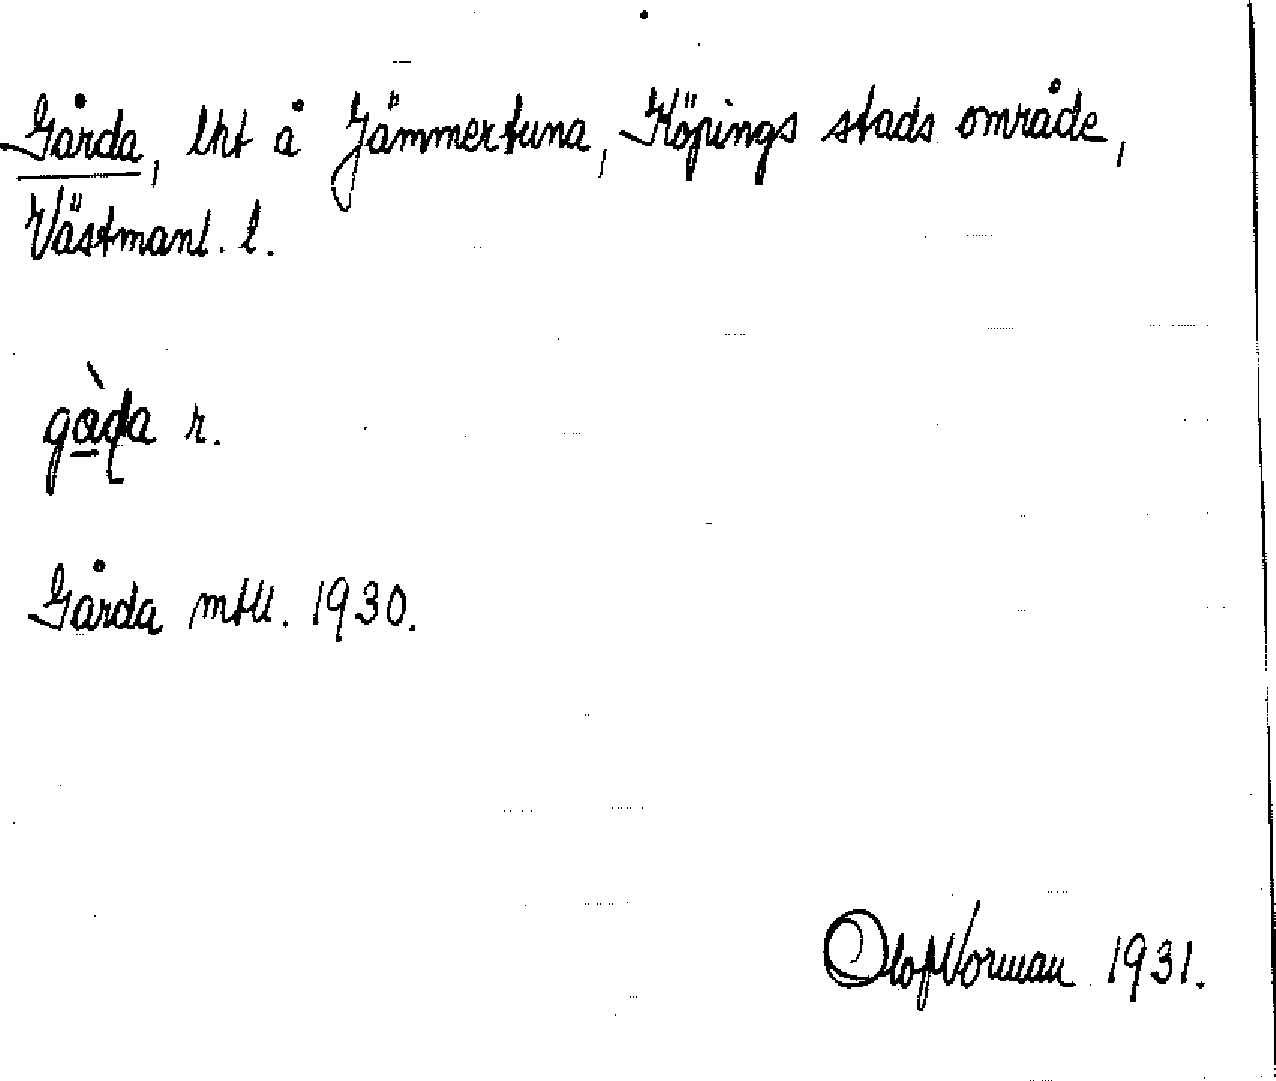 Gårda, lht å Jämmertuna, Köpings stads område,
Västmanl. l.
gàɖa r.
Gårda mtll. 1930.
Olof Norman 1931.